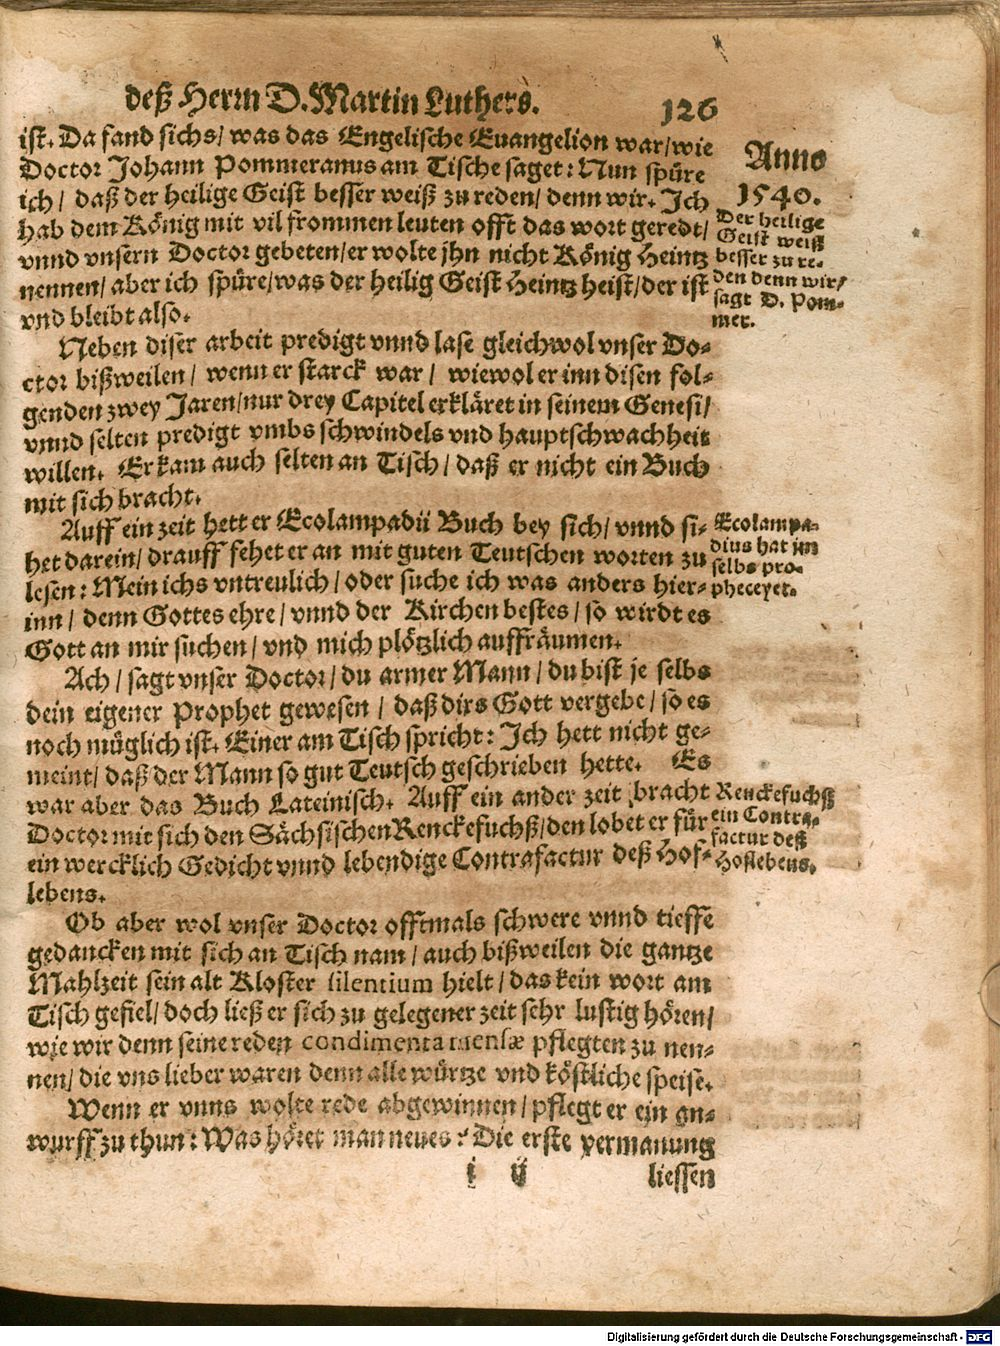 deß Herrn D. Martin Luthers.
126
ist. Da fand sichs/ was das Engelische Euangelion war/ wie
Doctor Johann Pommeranus am Tische saget: Nun spüre
ich/ daß der heilige Geist besser weiß zu reden/ denn wir. Ich
hab dem König mit vil frommen leuten offt das wort geredt/
vnnd vnsern Doctor gebeten/ er wolte jhn nicht König Heintz
nennen/ aber ich spüre/ was der heilig Geist Heintz heist/ der ist
vnd bleibt also.
Anno
1540.
Der heilige
Geist weiß
besser zu re-
den denn wir/
sagt D. Pom-
mer.
Neben diser arbeit predigt vnnd lase gleichwol vnser Do-
ctor bißweilen/ wenn er starck war/ wiewol er inn disen fol-
genden zwey Jaren/ nur drey Capitel erkläret in seinem Genesi/
vnnd selten predigt vmbs schwindels vnd hauptschwachheit
willen. Er kam auch selten an Tisch/ daß er nicht ein Buch
mit sich bracht.
Auff ein zeit hett er Ecolampadii Buch bey sich/ vnnd si-
het darein/ drauff fehet er an mit guten Teutschen worten zu
lesen: Mein ichs vntreulich/ oder suche ich was anders hier-
inn/ denn Gottes ehre/ vnnd der Kirchen bestes/ so wirdt es
Gott an mir suchen/ vnd mich plötzlich auffräumen.
Ecolampa-
dius hat jm
selbs pro-
pheceyet.
Ach/ sagt vnser Doctor/ du armer Mann/ du bist je selbs
dein eigener Prophet gewesen/ daß dirs Gott vergebe/ so es
noch müglich ist. Einer am Tisch spricht: Ich hett nicht ge-
meint/ daß der Mann so gut Teutsch geschrieben hette. Es
war aber das Buch Lateinisch. Auff ein ander zeit bracht
Doctor mit sich den Sächsischen Renckefuchß/ den lobet er für
ein wercklich Gedicht vnnd lebendige Contrafactur deß Hof-
lebens.
Renckefuchß
ein Contra-
factur deß
Hoflebens.
Ob aber wol vnser Doctor offtmals schwere vnnd tieffe
gedancken mit sich an Tisch nam/ auch bißweilen die gantze
Mahlzeit sein alt Kloster silentium hielt/ das kein wort am
Tisch gefiel/ doch ließ er sich zu gelegener zeit sehr lustig hören/
wie wir denn seine reden condimenta mensæ pflegten zu nen-
nen/ die vns lieber waren denn alle würtze vnd köstliche speise.
Wenn er vnns wolte rede abgewinnen/ pflegt er ein an-
wurff zu thun: Was höret man neues? Die erste vermanung
i ij
liessen
Digitalisierung gefördert durch die Deutsche Forschungsgemeinschaft - DFG